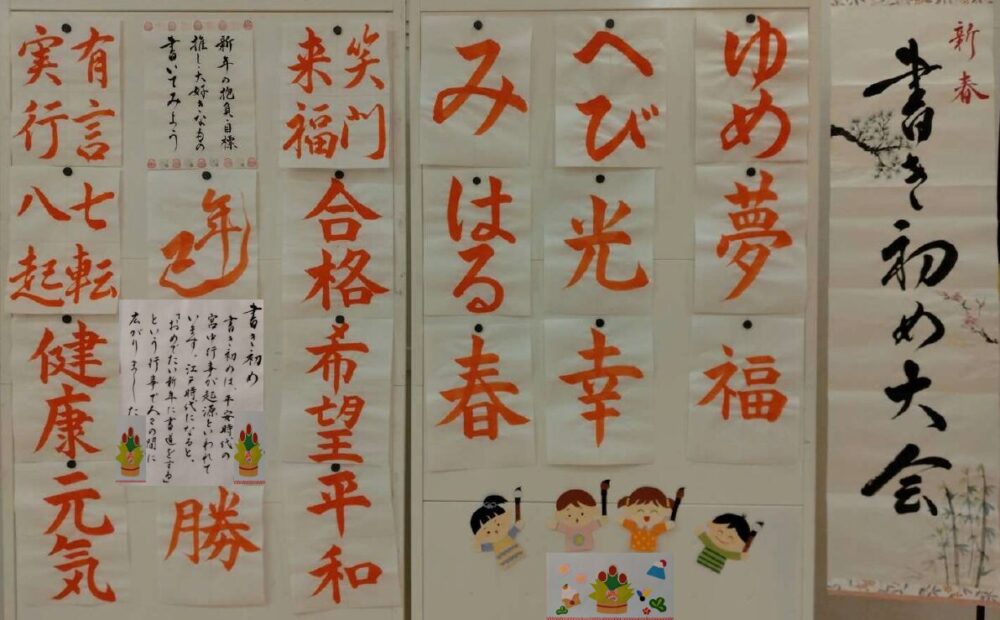 新春
書き初め大会
ゆめ
へび
み
夢
光
はる
福
幸
春
笑門
来福
新年の抱負・目標
推し・大好きなもの
書いてみよう
有言
実行
合格
巳年
七転
八起
希望
書き初め
書き初めは、平安時代の
宮中行事が起源といわれて
います。江戸時代になると、
「おめでたい新年に書道をする」
という行事で人々の間に
広がりました
健康
平和
勝
元気